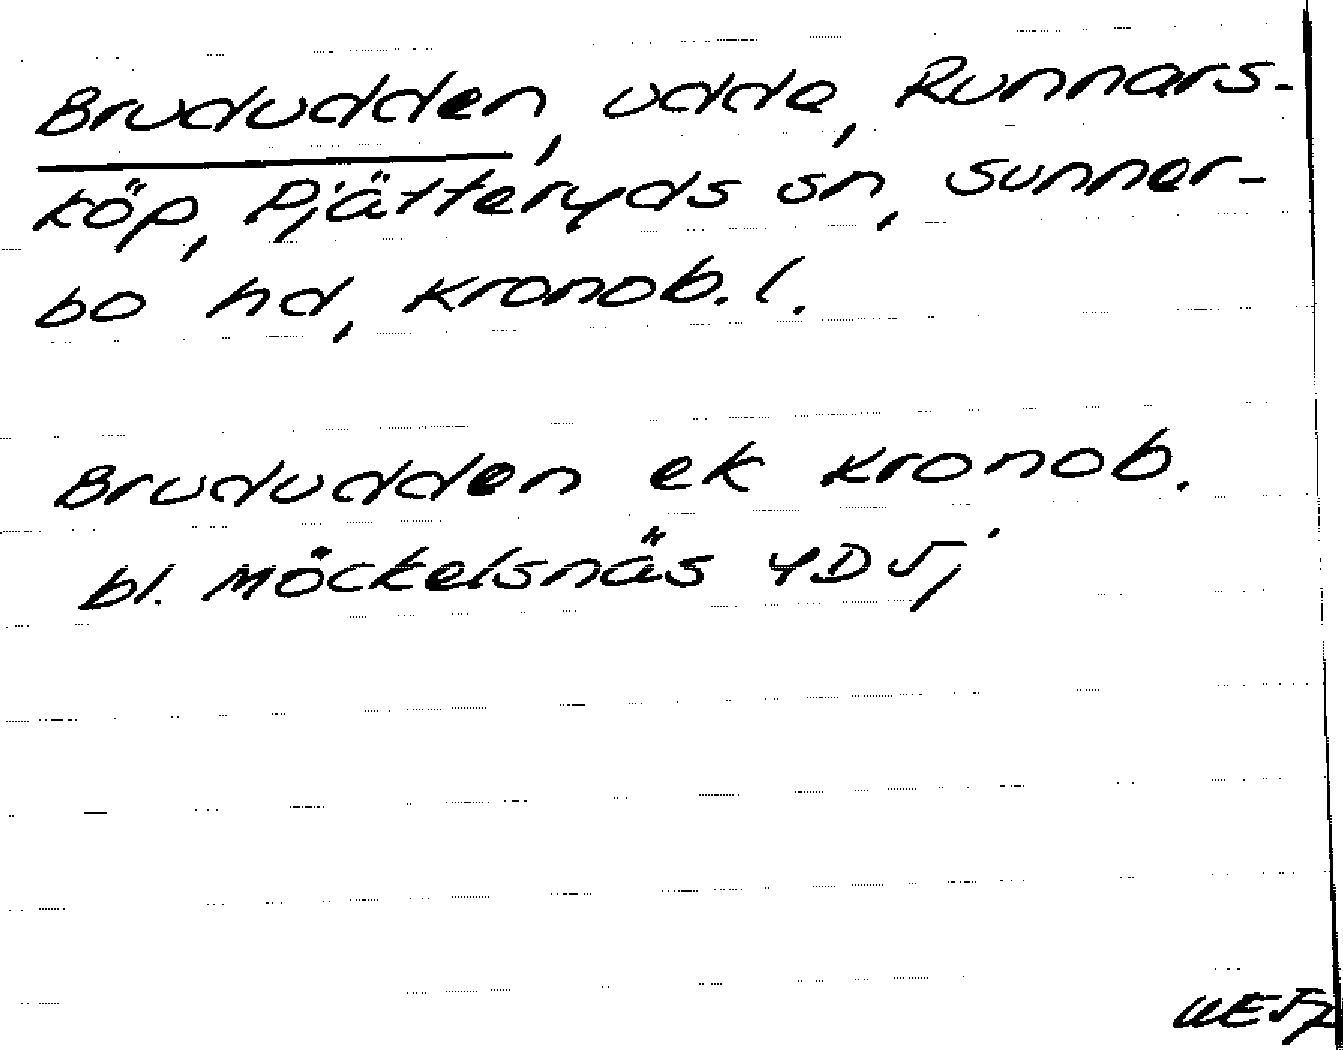 Brududden, udde, Runnars-
köp, Pjätteryds sn, Sunner-
bo hd, Kronob. l.
Brududden ek Kronob.
bl. Möckelsnäs 4D 5j